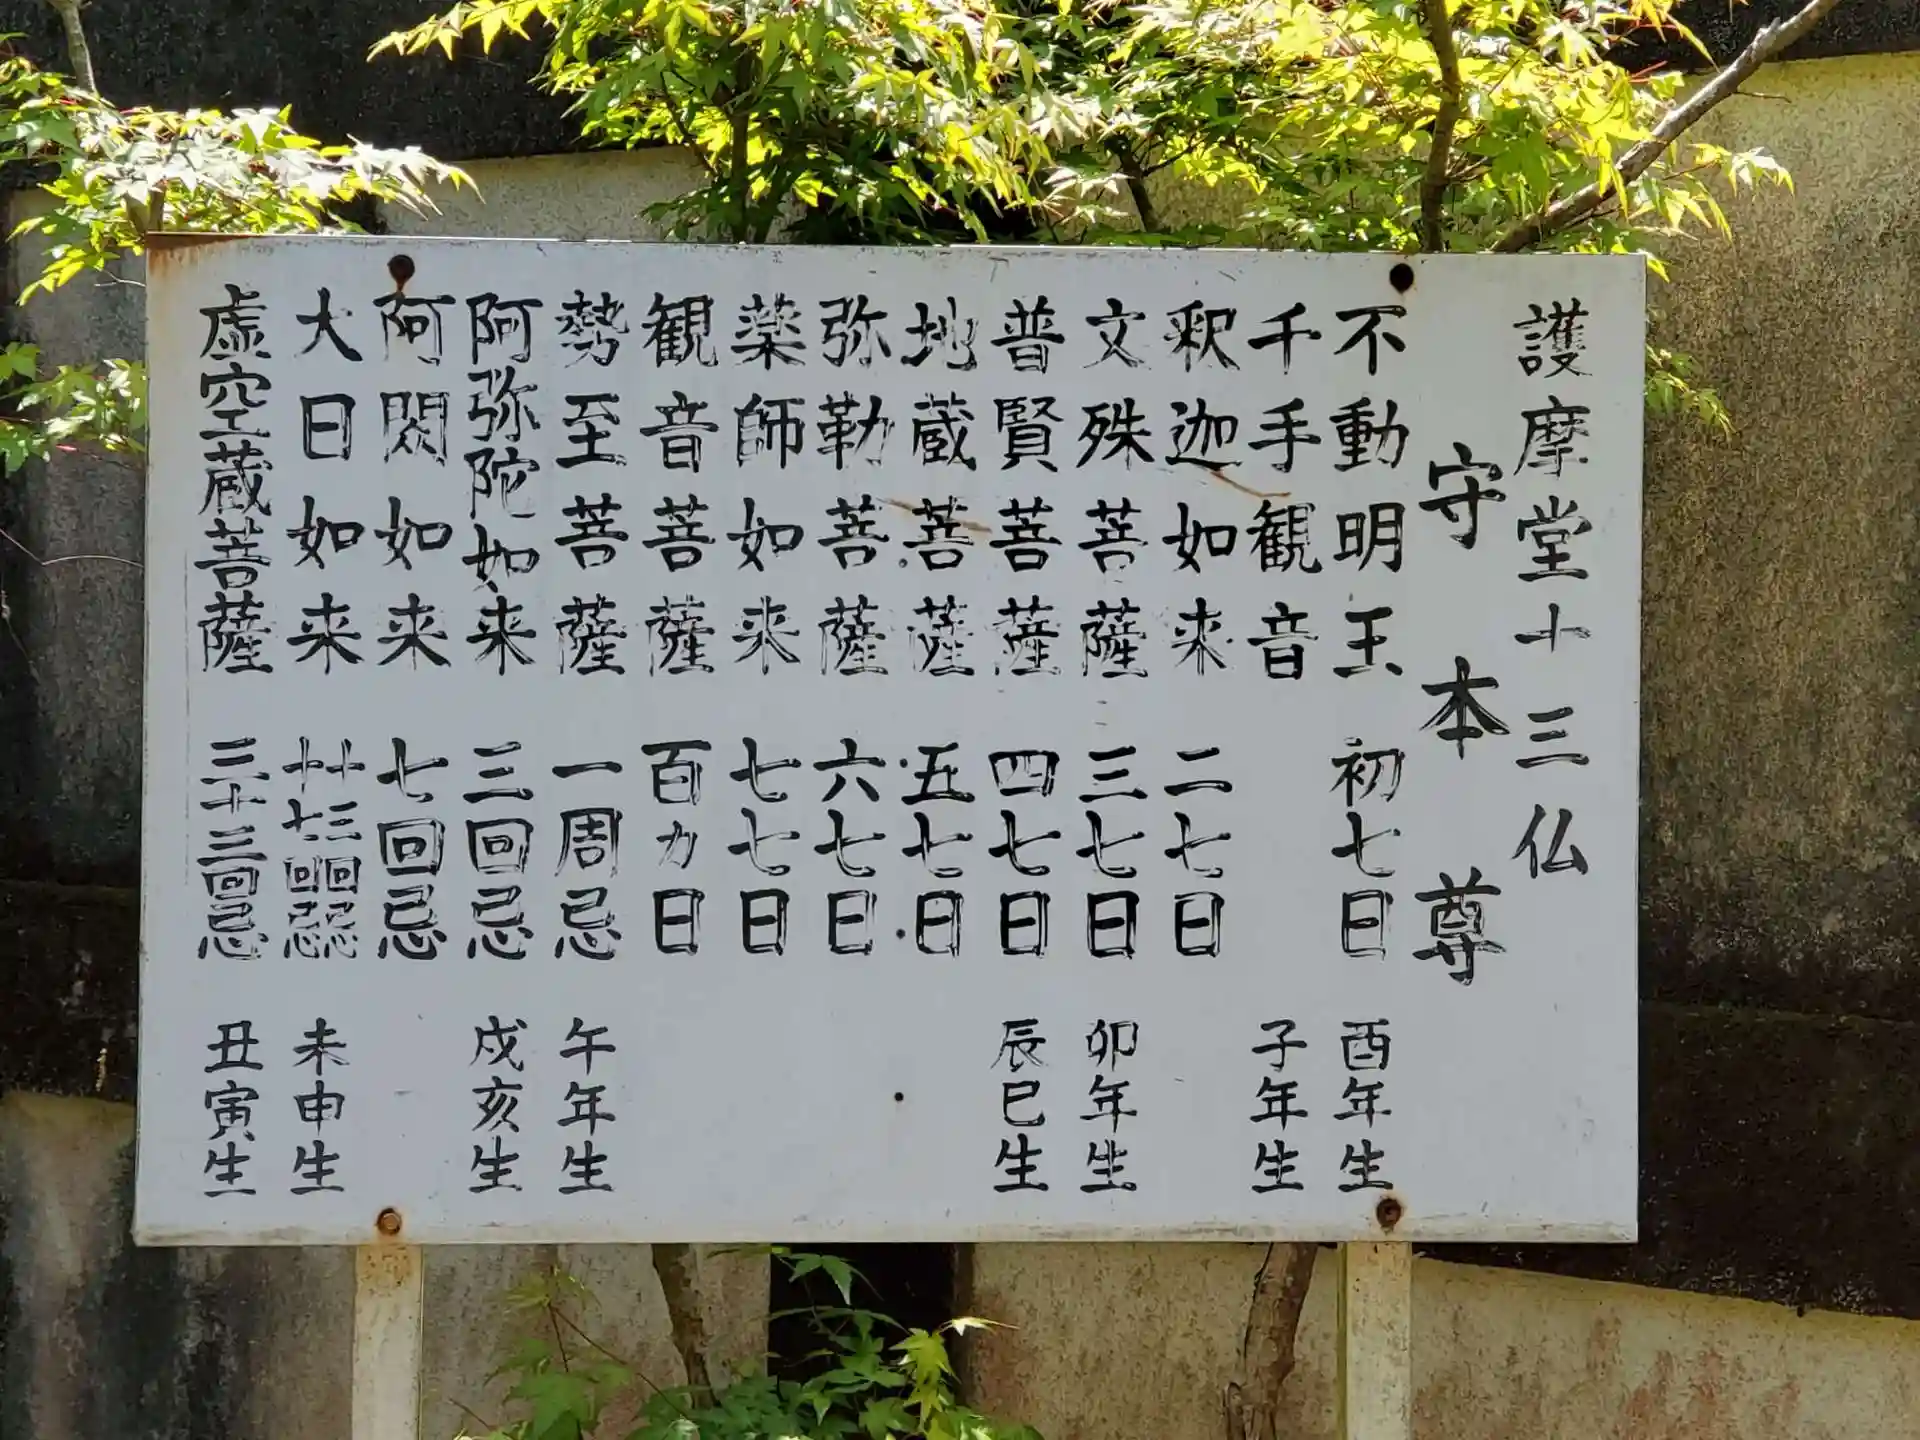 護摩堂十三仏
守本尊
不動明王 初七日 酉年生
千手観音 子年生
釈迦如来 二七日
文殊菩薩 三七日 卯年生
普賢菩薩 四七日 辰巳生
地蔵菩薩 五七日
弥勒菩薩 六七日
薬師如来 七七日
観音菩薩 百カ日
勢至菩薩 一周忌 午年生
阿弥陀如来 三回忌 戌亥生
阿閦如来 七回忌
大日如来 十三回忌 十七回忌 未申生
虚空蔵菩薩 三十三回忌 丑寅生